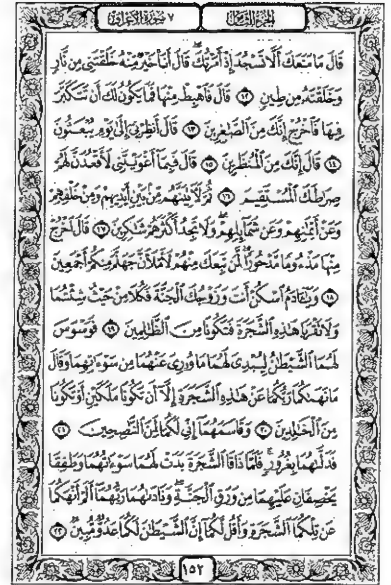 الجزء الثامن ٧ سورة الأعراف
قَالَ مَا مَنَعَكَ أَلَّا تَسْجُدَ إِذْ أَمَرْتُكَ قَالَ أَنَا۠ خَيْرٌ مِّنْهُ خَلَقْتَنِى مِن نَّارٍ
وَخَلَقْتَهُۥ مِن طِينٍ ١٢ قَالَ فَٱهْبِطْ مِنْهَا فَمَا يَكُونُ لَكَ أَن تَتَكَبَّرَ
فِيهَا فَٱخْرُجْ إِنَّكَ مِنَ ٱلصَّـٰغِرِينَ ١٣ قَالَ أَنظِرْنِىٓ إِلَىٰ يَوْمِ يُبْعَثُونَ
١٤ قَالَ إِنَّكَ مِنَ ٱلْمُنظَرِينَ ١٥ قَالَ فَبِمَآ أَغْوَيْتَنِى لَأَقْعُدَنَّ لَهُمْ
صِرَٰطَكَ ٱلْمُسْتَقِيمَ ١٦ ثُمَّ لَـَٔاتِيَنَّهُم مِّنۢ بَيْنِ أَيْدِيهِمْ وَمِنْ خَلْفِهِمْ
وَعَنْ أَيْمَـٰنِهِمْ وَعَن شَمَآئِلِهِمْ وَلَا تَجِدُ أَكْثَرَهُمْ شَـٰكِرِينَ ١٧ قَالَ ٱخْرُجْ
مِنْهَا مَذْءُومًا مَّدْحُورًا لَّمَن تَبِعَكَ مِنْهُمْ لَأَمْلَأَنَّ جَهَنَّمَ مِنكُمْ أَجْمَعِينَ
١٨ وَيَـٰٓـَٔادَمُ ٱسْكُنْ أَنتَ وَزَوْجُكَ ٱلْجَنَّةَ فَكُلَا مِنْ حَيْثُ شِئْتُمَا
وَلَا تَقْرَبَا هَـٰذِهِ ٱلشَّجَرَةَ فَتَكُونَا مِنَ ٱلظَّـٰلِمِينَ ١٩ فَوَسْوَسَ
لَهُمَا ٱلشَّيْطَـٰنُ لِيُبْدِىَ لَهُمَا مَا وُۥرِىَ عَنْهُمَا مِن سَوْءَٰتِهِمَا وَقَالَ
مَا نَهَىٰكُمَا رَبُّكُمَا عَنْ هَـٰذِهِ ٱلشَّجَرَةِ إِلَّآ أَن تَكُونَا مَلَكَيْنِ أَوْ تَكُونَا
مِنَ ٱلْخَـٰلِدِينَ ٢٠ وَقَاسَمَهُمَآ إِنِّى لَكُمَا لَمِنَ ٱلنَّـٰصِحِينَ ٢١
فَدَلَّىٰهُمَا بِغُرُورٍ فَلَمَّا ذَاقَا ٱلشَّجَرَةَ بَدَتْ لَهُمَا سَوْءَٰتُهُمَا وَطَفِقَا
يَخْصِفَانِ عَلَيْهِمَا مِن وَرَقِ ٱلْجَنَّةِ وَنَادَىٰهُمَا رَبُّهُمَآ أَلَمْ أَنْهَكُمَا
عَن تِلْكُمَا ٱلشَّجَرَةِ وَأَقُل لَّكُمَآ إِنَّ ٱلشَّيْطَـٰنَ لَكُمَا عَدُوٌّ مُّبِينٌ ٢٢
١٥٢